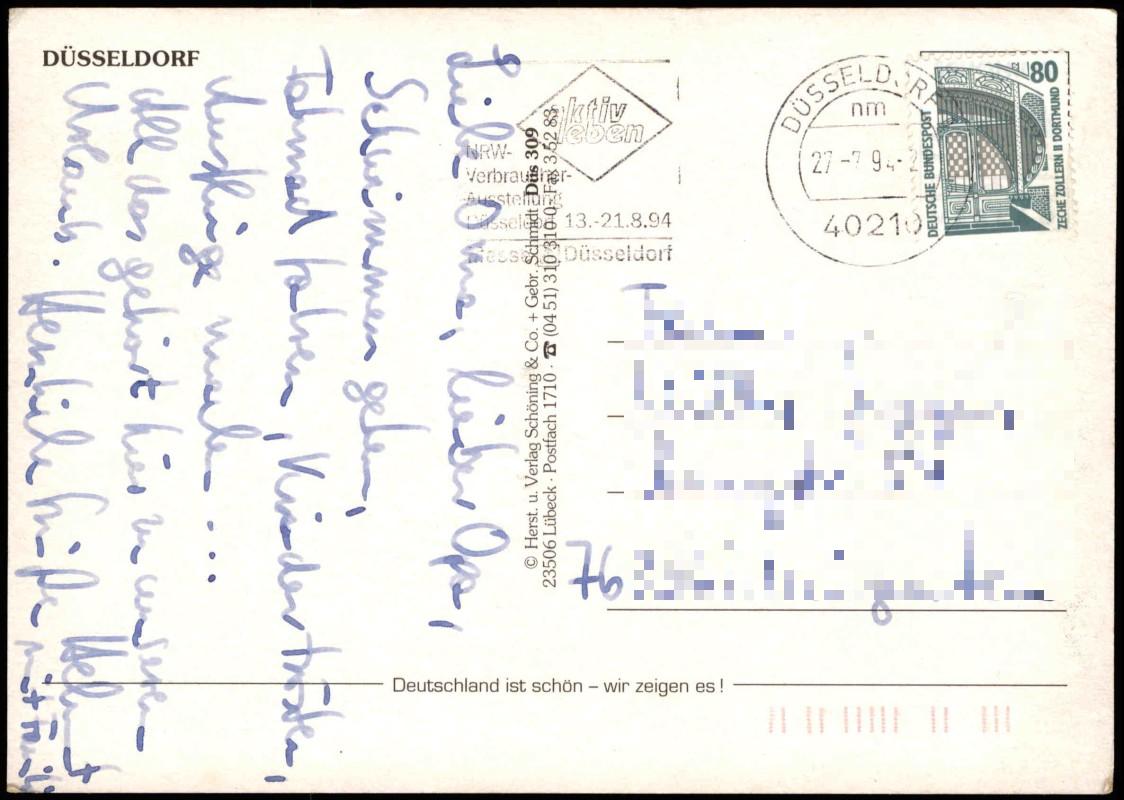 DÜSSELDORF
Liebe Oma, lieber Opa,
Schwimmen gehen,
Fahrrad fahren, Kindertrödel,
Ausflüge machen ...
all das gehört hier zu unserem
Urlaub. Herzliche Grüße Helmut
mit Familie
© Herst. u. Verlag Schöning & Co. + Gebr. Schmidt Düs 309
23506 Lübeck · Postfach 1710 · ☎ (04 51) 310 310-0 · Fax 3 52 83
aktiv
leben
NRW-
Verbraucher-
Ausstellung
Düsseldorf 13.-21.8.94
Messe Düsseldorf
DÜSSELDORF
nm
27-7.94-
40210
80
DEUTSCHE BUNDESPOST
ZECHE ZOLLERN II DORTMUND
76
Deutschland ist schön – wir zeigen es!